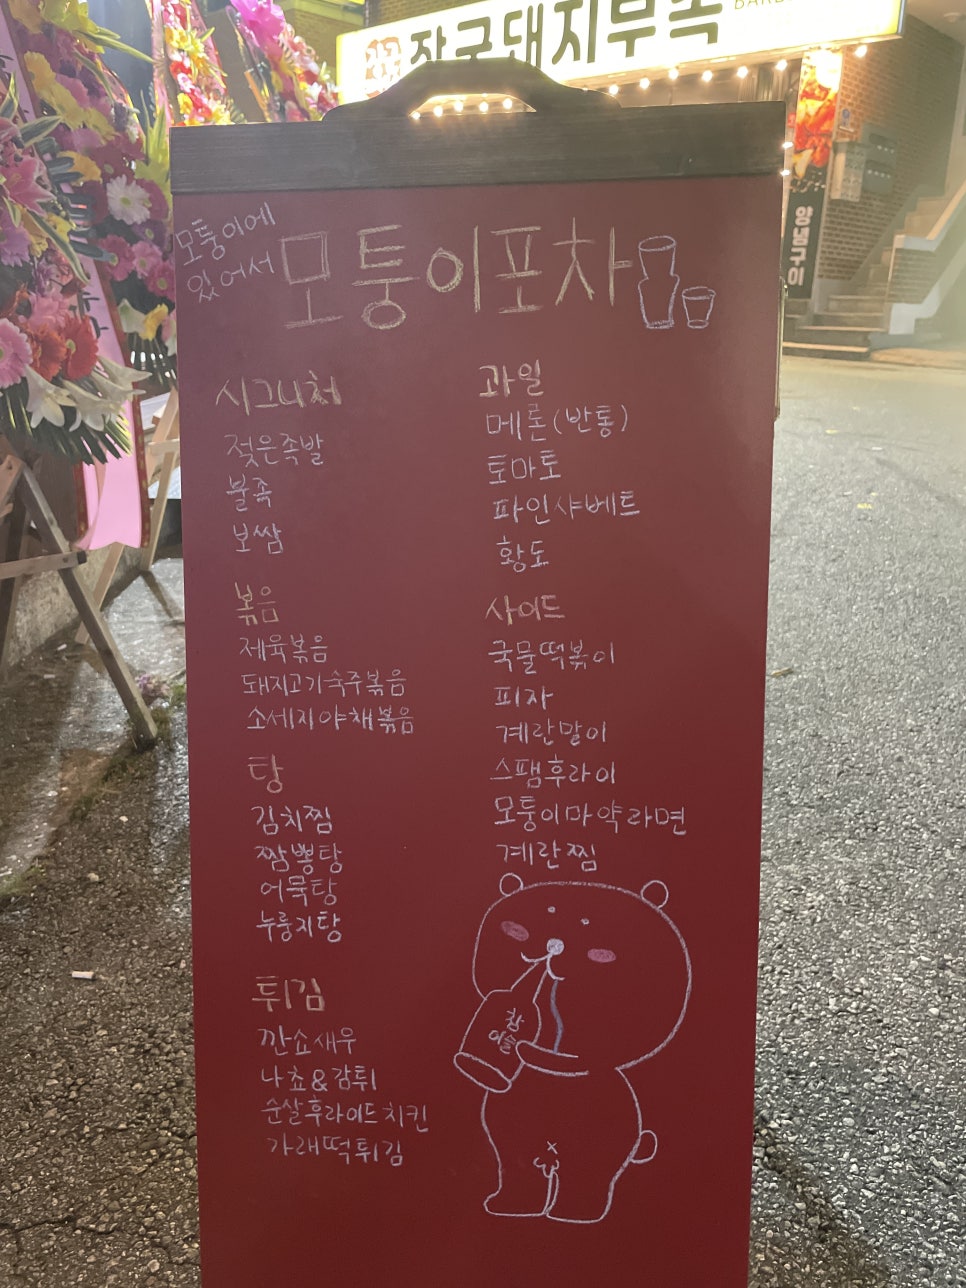 작국돼지부속
모퉁이에
있어서
모퉁이포차
시그니처
젖은족발
불족
보쌈
볶음
제육볶음
돼지고기숙주볶음
소세지야채볶음
탕
김치찜
짬뽕탕
어묵탕
누룽지탕
튀김
깐쇼새우
나쵸&감튀
순살후라이드치킨
가래떡튀김
과일
메론(반통)
토마토
파인샤베트
황도
사이드
국물떡볶이
피자
계란말이
스팸후라이
모퉁이마약라면
계란찜
참
이슬